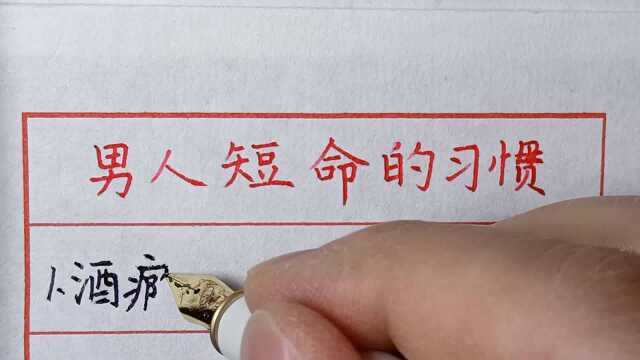 男人短命的习惯
1.酒